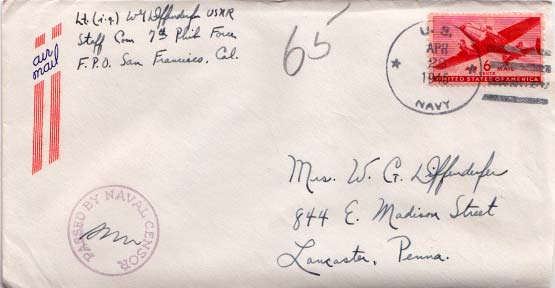 Lt. (j.g.) W G Diffenderfer USNR
Staff Com 7th Phib Force
F.P.O. San Francisco, Cal.
air
mail
65
U.S.
APR
1945
NAVY
6
CENTS
UNITED STATES OF AMERICA
Mrs. W. G. Diffenderfer
844 E. Madison Street
Lancaster, Penna.
PASSED BY NAVAL CENSOR